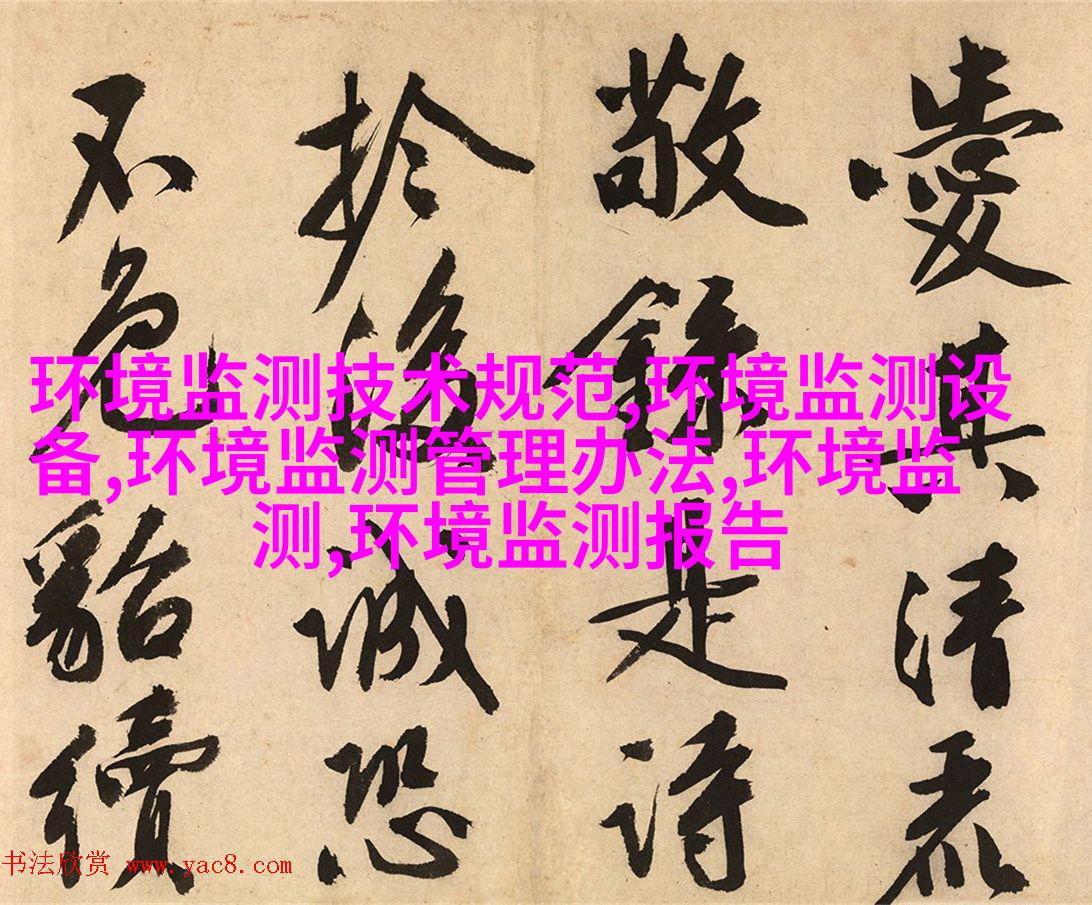 愛其清麗
敬錄是詩
扵後誠恐
不免貂續
环境监测技术规范,环境监测设
备,环境监测管理办法,环境监
测,环境监测报告
书法欣赏 www.yac8.com